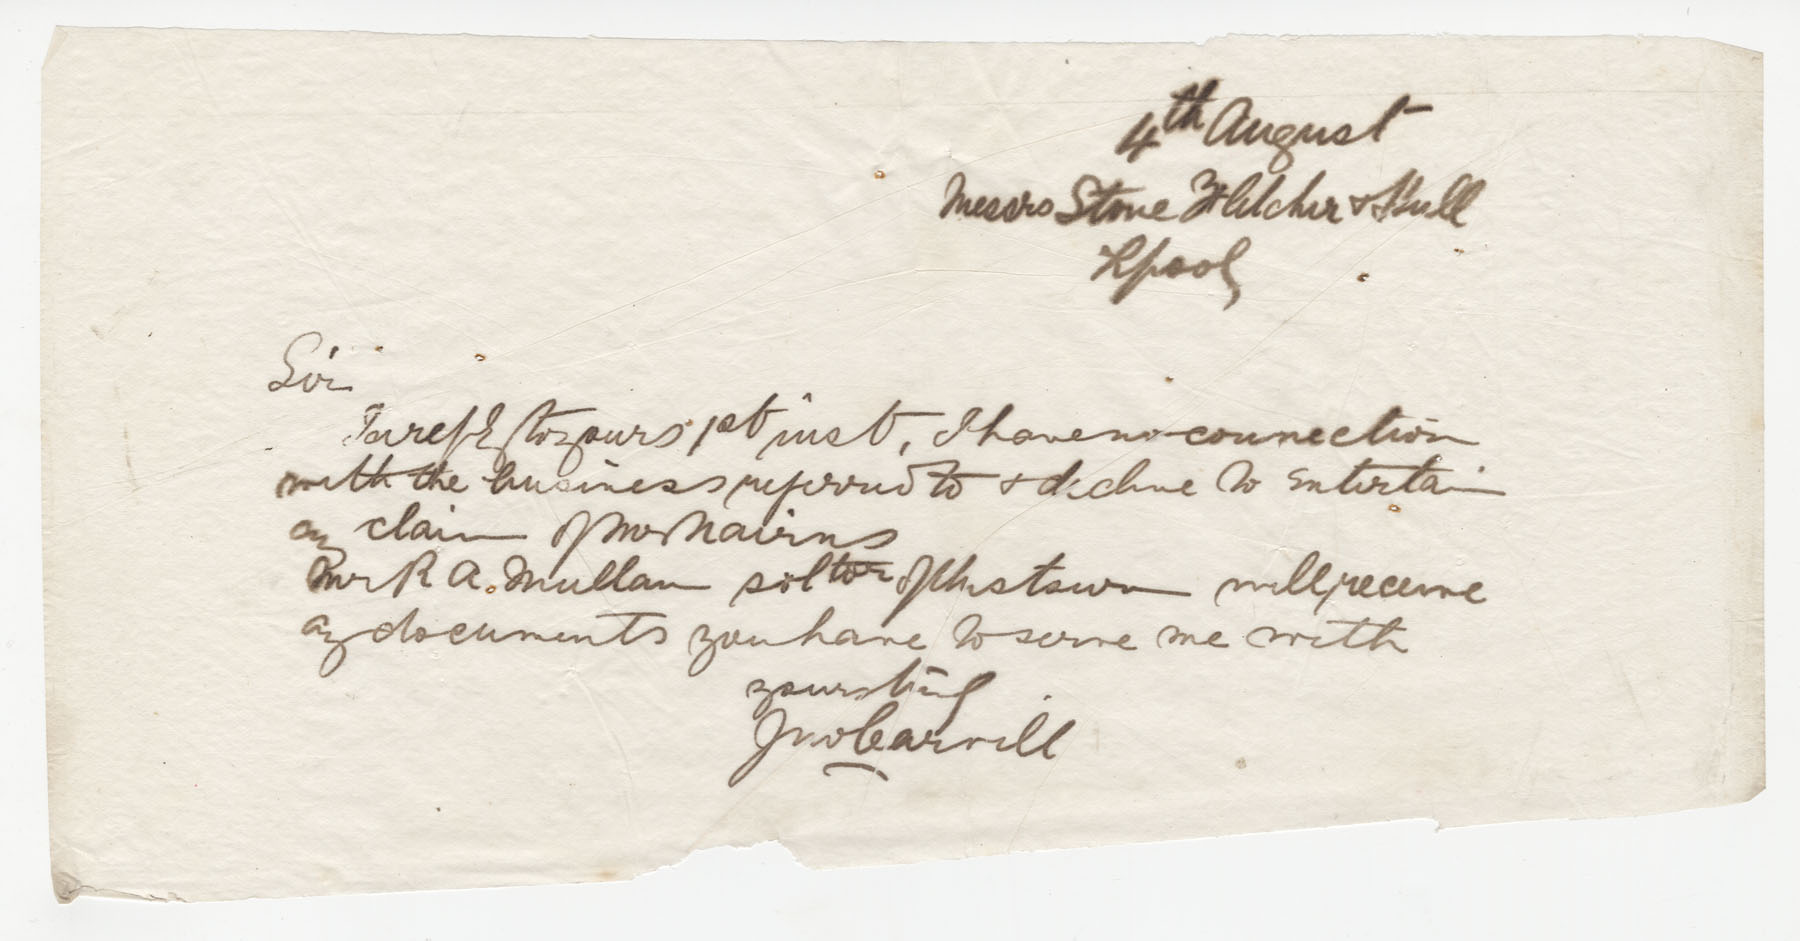 4th August
Messrs Stone Fletcher & Hull
Lpool,
Sir
In reply to yours 1st inst, I have no connection
with the business referred to & decline to entertain
any claim of Mr Nairns
Mr R A. Mullan soltor of this town will receive
any documents you have to serve me with
yours truly
Jno Carvill